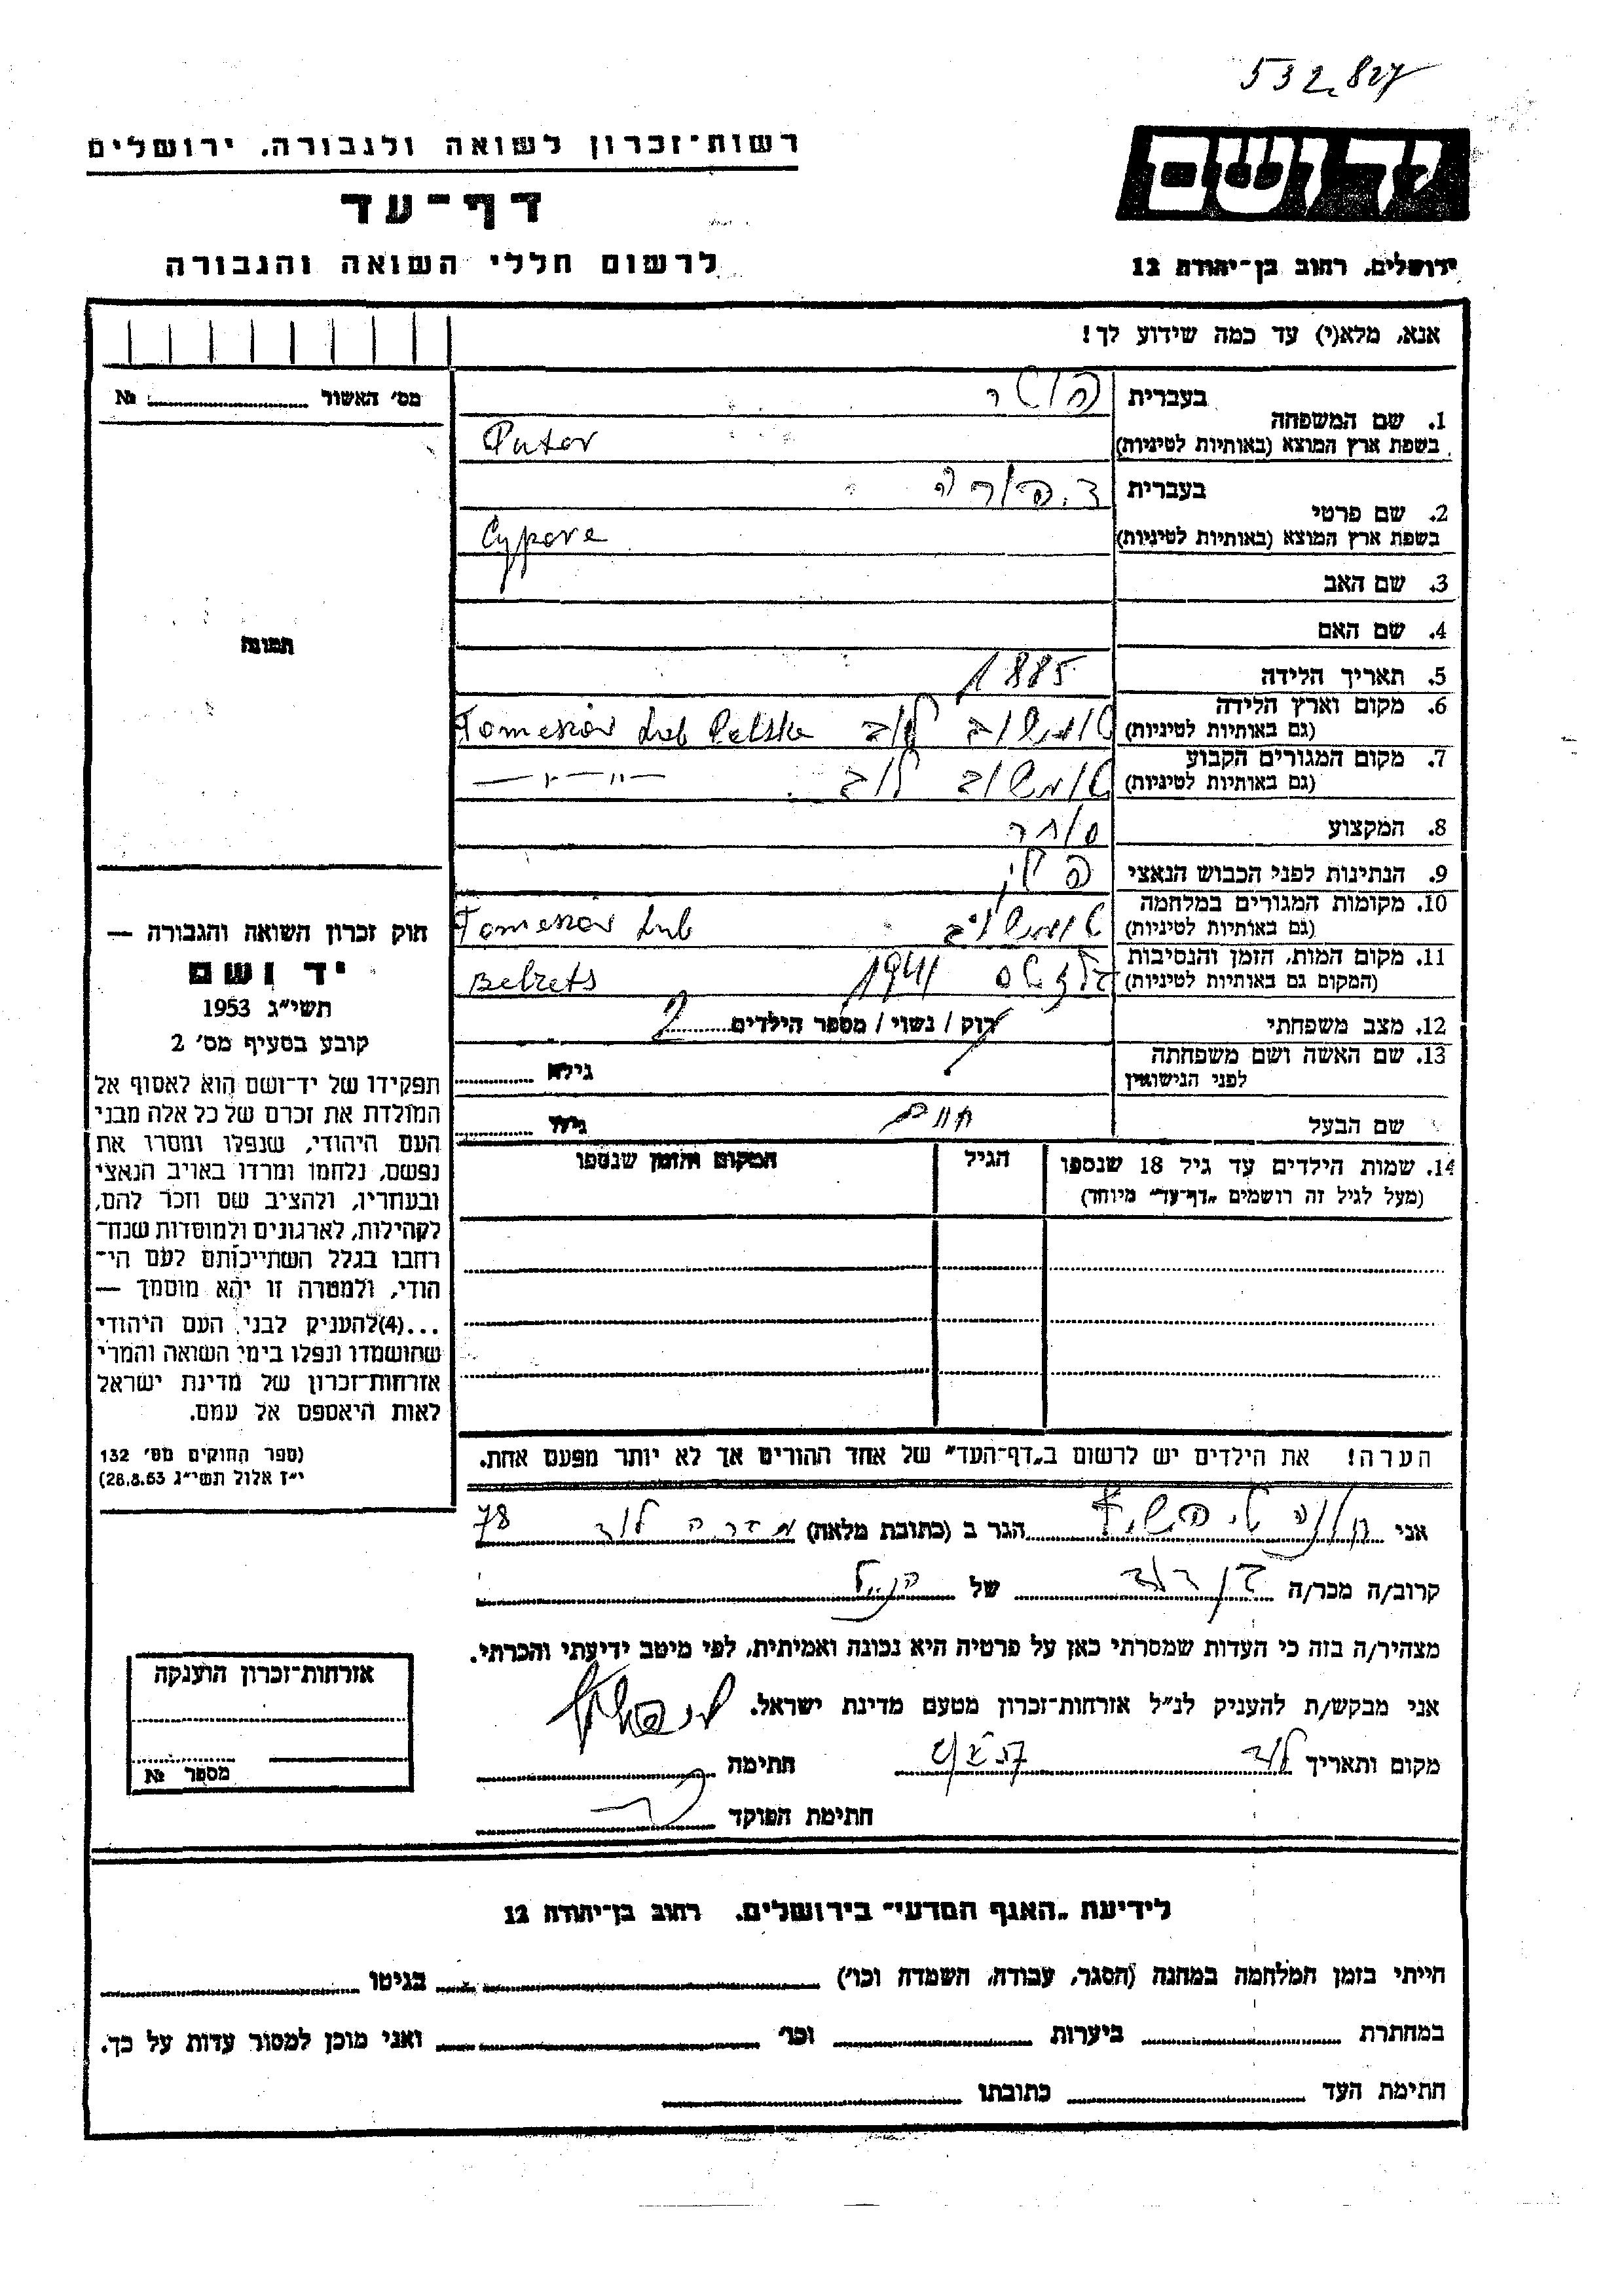 532,827
יד ושם
ירושלים, רחוב בן־יהודה 12
רשות־זכרון לשואה ולגבורה, ירושלים
דף־עד
לרשום חללי השואה והגבורה
אנא, מלא(י) עד כמה שידוע לך!
מס' האשור № 
1. שם המשפחה בעברית פוטר
בשפת ארץ המוצא (באותיות לטיניות) Puter
2. שם פרטי בעברית צפורה
בשפת ארץ המוצא (באותיות לטיניות) Cypora
3. שם האב
4. שם האם
5. תאריך הלידה 1885
6. מקום וארץ הלידה (גם באותיות לטיניות) טומשוב לוב Tomeszów Lub Polska
7. מקום המגורים הקבוע (גם באותיות לטיניות) טומשוב לוב —״—״—
8. המקצוע סוחר
9. הנתינות לפני הכבוש הנאצי פולי
10. מקומות המגורים במלחמה (גם באותיות לטיניות) טומשוב Tomeszów Lub
11. מקום המות, הזמן והנסיבות (המקום גם באותיות לטיניות) בלזטס 1941 Belzets
12. מצב משפחתי רוק / נשוי / מספר הילדים 2
13. שם האשה ושם משפחתה לפני הנישואין גילה
שם הבעל חיים גילו
14. שמות הילדים עד גיל 18 שנספו (מעל לגיל זה רושמים „דף־עד" מיוחד) הגיל המקום והזמן שנספו
הערה! את הילדים יש לרשום ב„דף־העד" של אחד ההורים אך לא יותר מפעם אחת.
תמונה
חוק זכרון השואה והגבורה —
יד ושם
תשי"ג 1953
קובע בסעיף מס' 2
תפקידו של יד־ושם הוא לאסוף אל
המולדת את זכרם של כל אלה מבני
העם היהודי, שנפלו ומסרו את
נפשם, נלחמו ומרדו באויב הנאצי
ובעוזריו, ולהציב שם וזכר להם,
לקהילות, לארגונים ולמוסדות שנח־
רבו בגלל השתייכותם לעם הי־
הודי, ולמטרה זו יהא מוסמך —
...(4)להעניק לבני העם היהודי
שהושמדו ונפלו בימי השואה והמרי
אזרחות־זכרון של מדינת ישראל
לאות היאספם אל עמם.
(ספר החוקים מס' 132
י"ז אלול תשי"ג 28.8.53)
אני הגר ב (כתובת מלאה) לוד 78
קרוב/ה מכר/ה של הנ"ל
מצהיר/ה בזה כי העדות שמסרתי כאן על פרטיה היא נכונה ואמיתית, לפי מיטב ידיעתי והכרתי.
אני מבקש/ת להעניק לנ"ל אזרחות־זכרון מטעם מדינת ישראל.
מקום ותאריך לוד חתימה
חתימת הפוקד
אזרחות־זכרון הוענקה
מספר №
לידיעת „האגף המדעי" בירושלים. רחוב בן־יהודה 12
הייתי בזמן המלחמה במחנה (הסגר, עבודה, השמדה וכו') בגיטו
במחתרת ביערות וכו' ואני מוכן למסור עדות על כך.
חתימת העד כתובתו